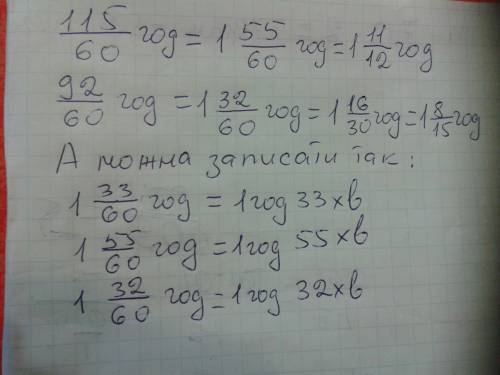 115/60 год = 1 55/60 год = 1 11/12 год
92/60 год = 1 32/60 год = 1 16/30 год = 1 8/15 год
А можна записати так:
1 33/60 год = 1 год 33 хв
1 55/60 год = 1 год 55 хв
1 32/60 год = 1 год 32 хв